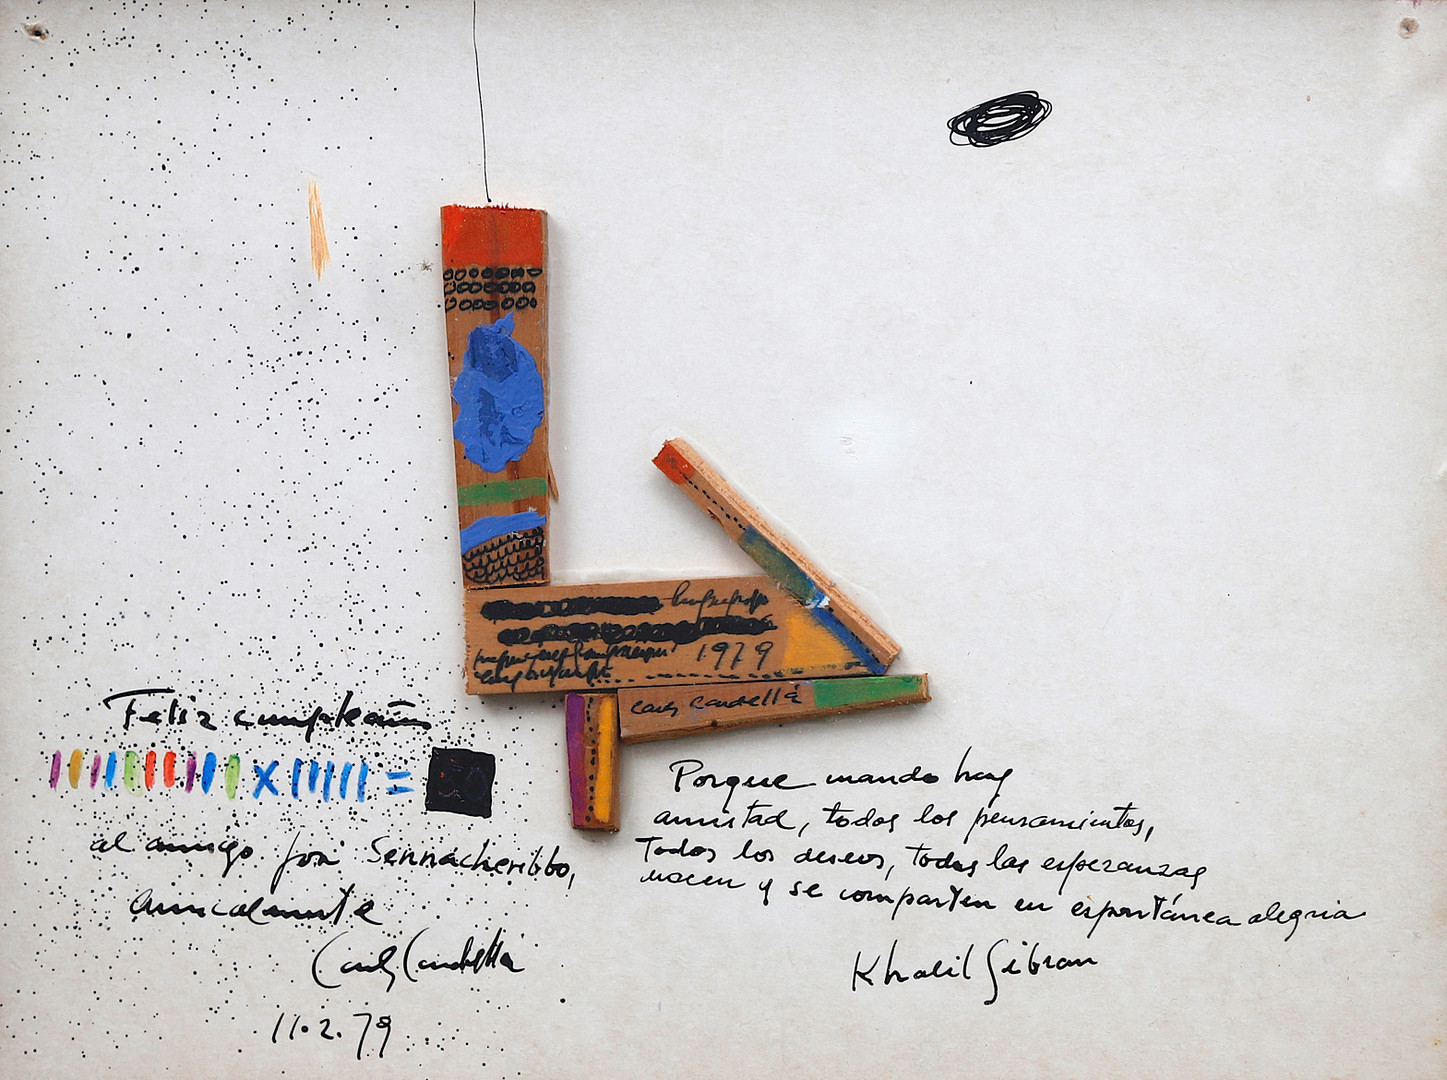 1979
Carles Candellà
Feliz cumpleaños
X =
al amigo José Sennacheribbo,
Amicalmente
Carles Candellà
11.2.79
Porque cuando hay
amistad, todos los pensamientos,
Todos los deseos, todas las esperanzas
nacen y se comparten en espontánea alegria
Khalil Gibran